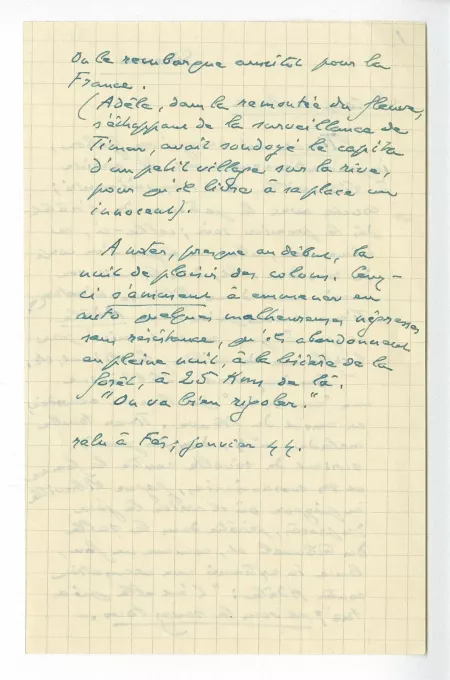 On le rembarque aussitôt pour la
France.
(Adèle, dans la remontée du fleuve,
s'échappant de la surveillance de
Timar, avait soudoyé le capita
d'un petit village sur la rive,
pour qu'il livre à sa place un
innocent).
A noter, presque au début, la
nuit de plaisir des colons. Ceux-
ci s'amusent à emmener en
auto quelques malheureuses négresses,
sans résistance, qu'ils abandonnent
en pleine nuit, à la lisière de la
forêt, à 25 Kms de là.
"On va bien rigoler."
relu à Fès, janvier 44.